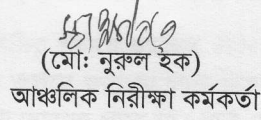 (মো: নুরুল হক)
আঞ্চলিক নিরীক্ষা কর্মকর্তা